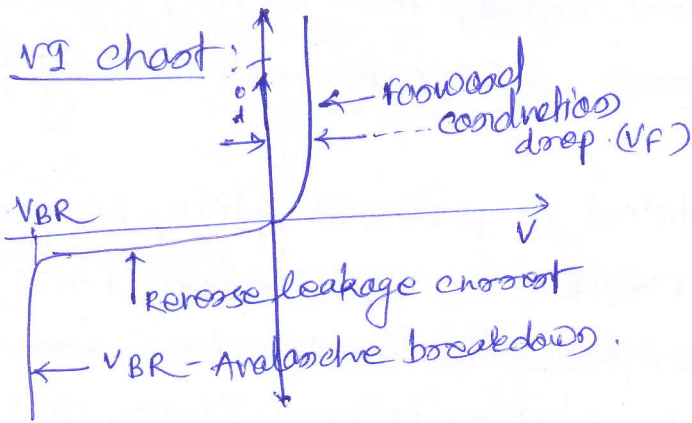 VI chart :
id
Forward
conduction
drop. (VF)
VBR
V
Reverse leakage current
VBR - Avalanche breakdown.